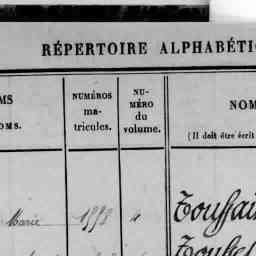 RÉPERTOIRE ALPHABÉTI
MS
OMS.
NUMÉROS
ma-
tricules.
NU-
MÉRO
du
volume.
NOM
(Il doit être écrit
Marie 1998 " Toussai